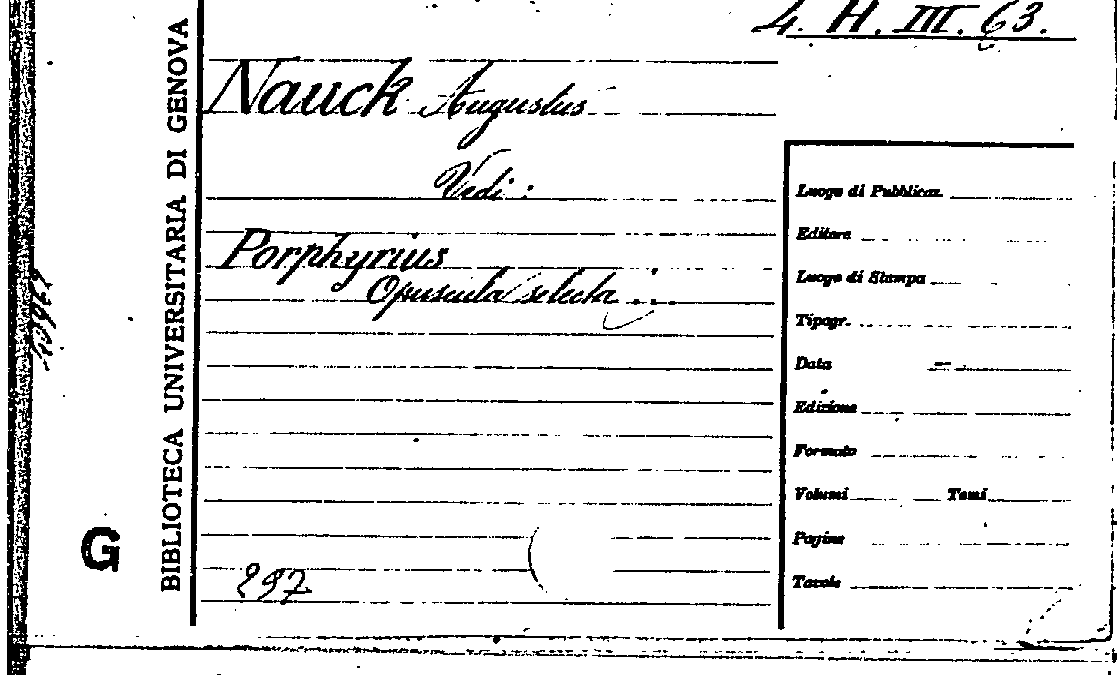 4. H. III. 63.
Nauck Augustus
Vedi:
Porphyrius
Opuscula selecta ...
297
BIBLIOTECA UNIVERSITARIA DI GENOVA
G
Luogo di Pubblicaz.
Editore
Luogo di Stampa
Tipogr.
Data —
Edizione
Formato
Volumi Tomi
Pagine
Tavole